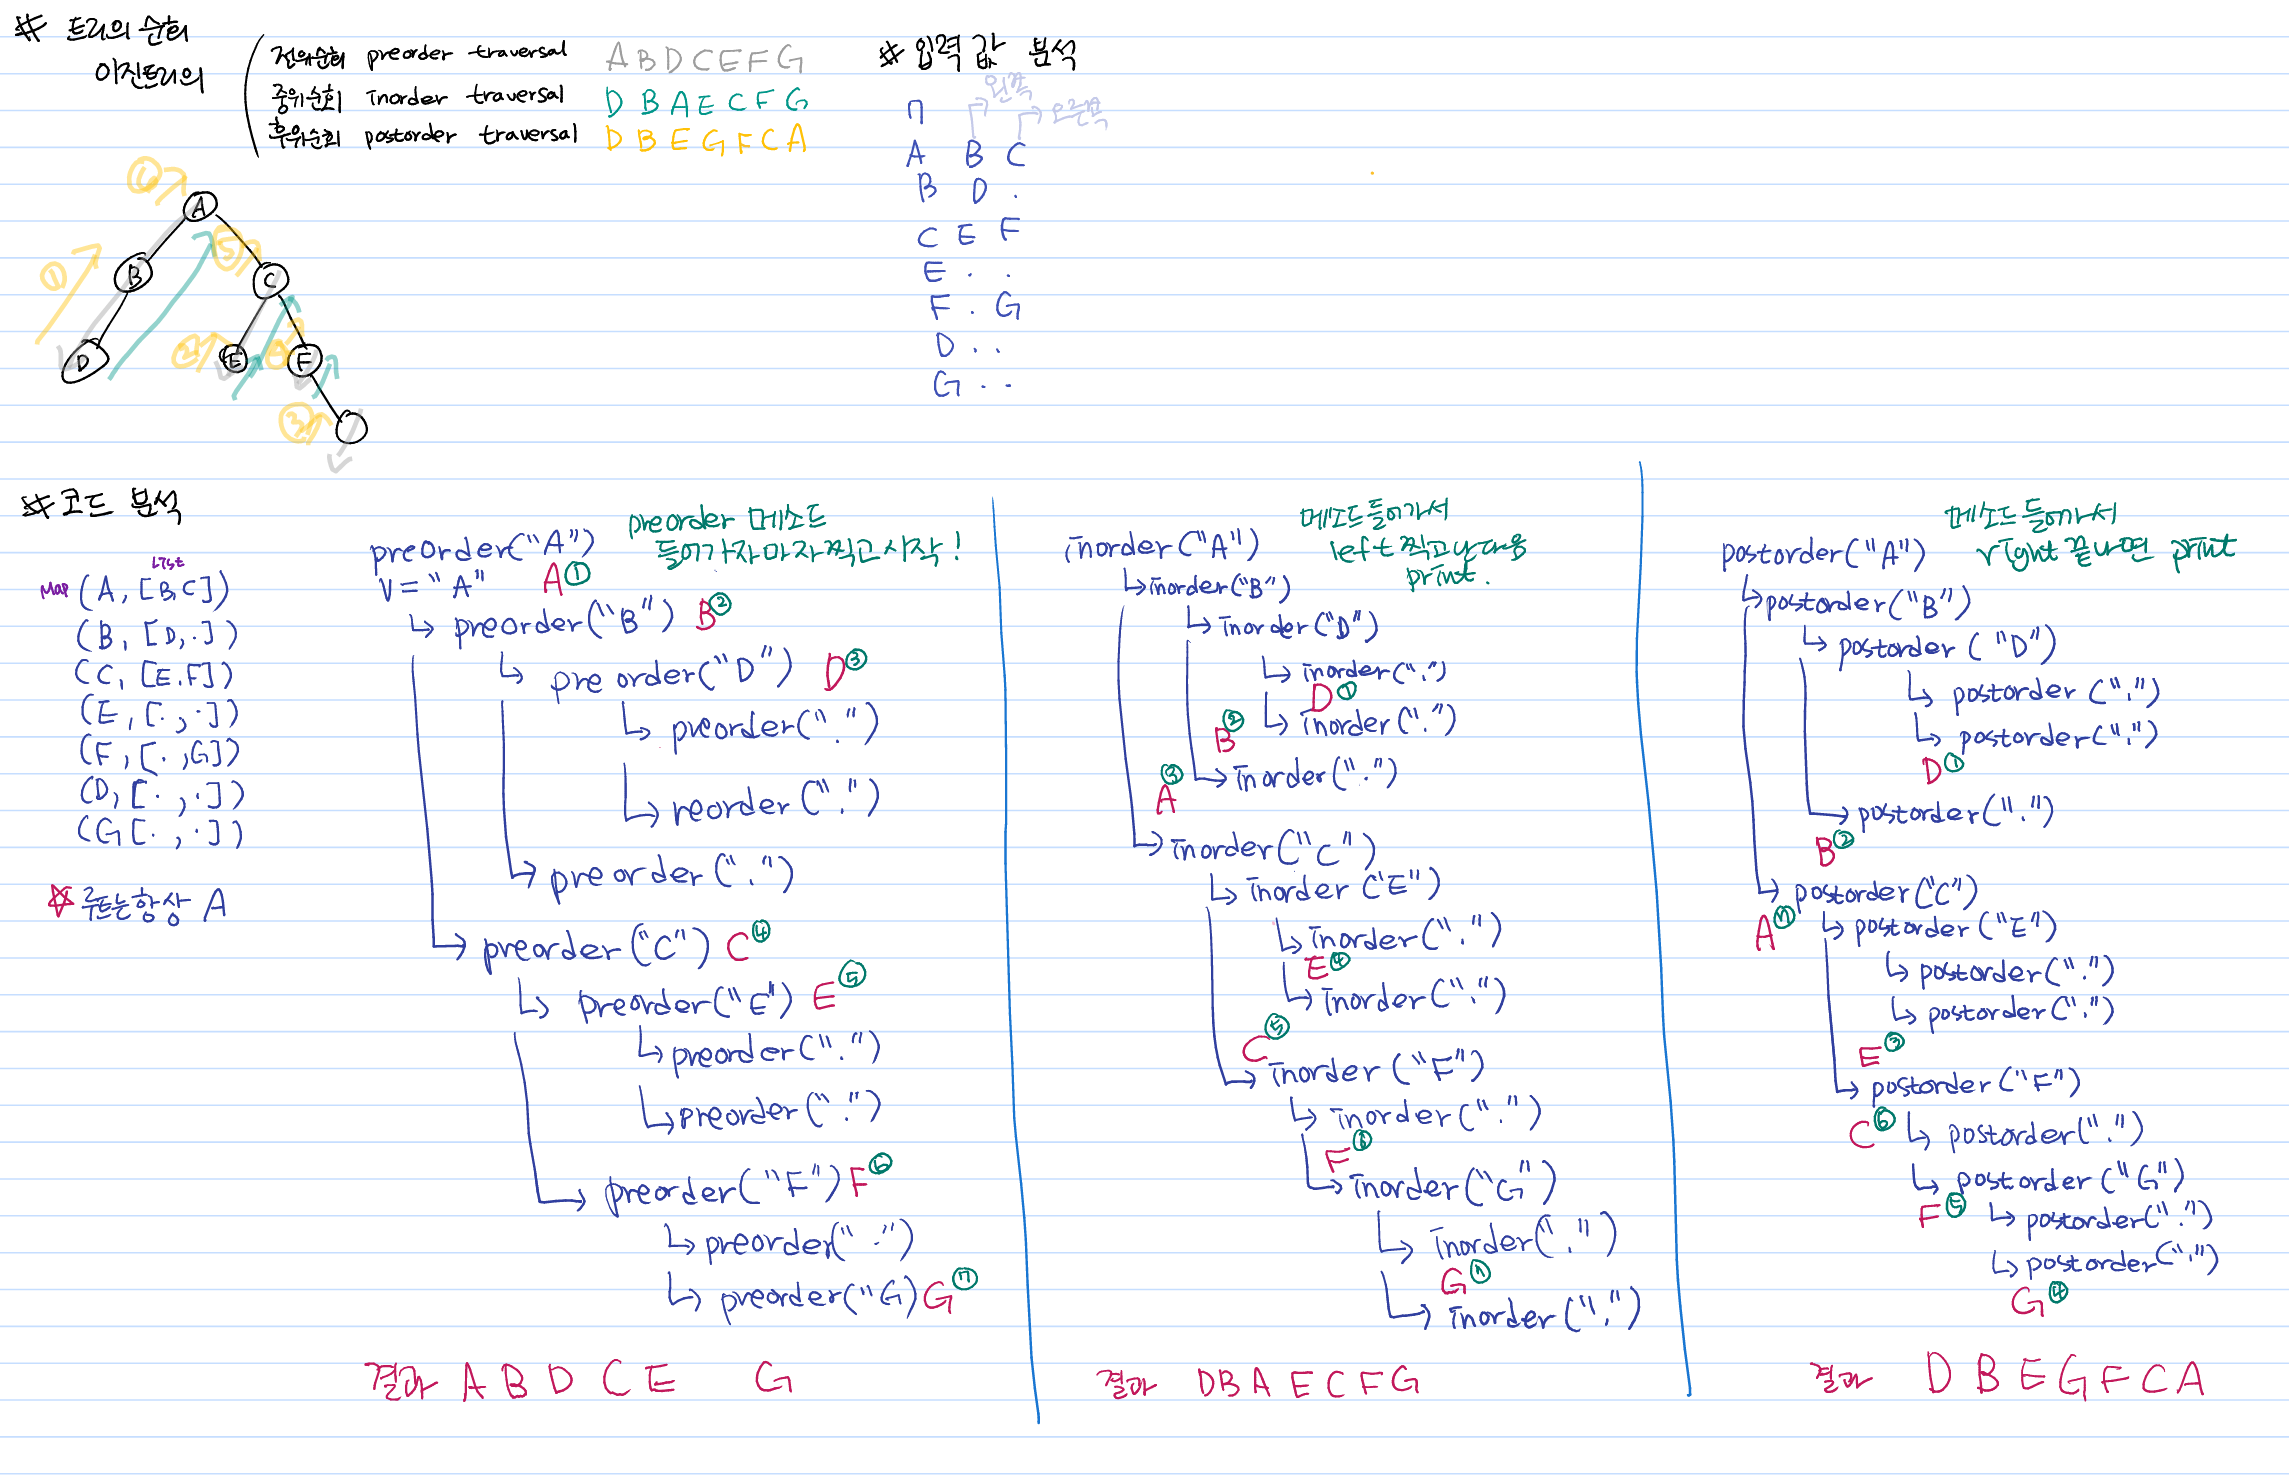 # 트리의 순회
이진트리의
전위순회 preorder traversal A B D C E F G
중위순회 inorder traversal D B A E C F G
후위순회 postorder traversal D B E G F C A
⑥
A
①
B
⑤
C
D
②
E
F
③
# 입력 값 분석
왼쪽
오른쪽
7
A B C
B D .
C E F
E . .
F . G
D . .
G . .
# 코드 분석
List
Map (A, [B,C])
(B, [D, .])
(C, [E.F])
(E, [. , .])
(F, [. ,G])
(D, [. , .])
(G [. , .])
☆ 루트는 항상 A
preorder 메소드
들어가자마자 찍고 시작!
preorder("A")
V = "A" A①
↳ preorder("B") B②
↳ preorder("D") D③
↳ preorder(".")
↳ reorder(".")
↳ preorder(".")
↳ preorder("C") C④
↳ preorder("E") E⑤
↳ preorder(".")
↳ preorder(".")
↳ preorder("F") F⑥
↳ preorder(".")
↳ preorder("G) G⑦
결과 A B D C E G
메소드 들어가서
left 찍고 난 다음
print.
inorder("A")
↳ inorder("B")
↳ inorder("D")
↳ inorder(".")
D①
↳ inorder(".")
B②
↳ inorder(".")
A③
↳ inorder("C")
↳ inorder("E")
↳ inorder(".")
E④
↳ inorder(".")
C⑤
↳ inorder("F")
↳ inorder(".")
F⑥
↳ inorder("G")
↳ inorder(".")
G⑦
↳ inorder(".")
결과 D B A E C F G
메소드 들어가서
right 끝나면 print
postorder("A")
↳ postorder("B")
↳ postorder("D")
↳ postorder(".")
↳ postorder(".")
D①
↳ postorder(".")
B②
↳ postorder("C")
A⑦
↳ postorder("E")
↳ postorder(".")
↳ postorder(".")
E③
↳ postorder("F")
C⑥
↳ postorder(".")
↳ postorder("G")
F⑤
↳ postorder(".")
↳ postorder(".")
G④
결과 D B E G F C A